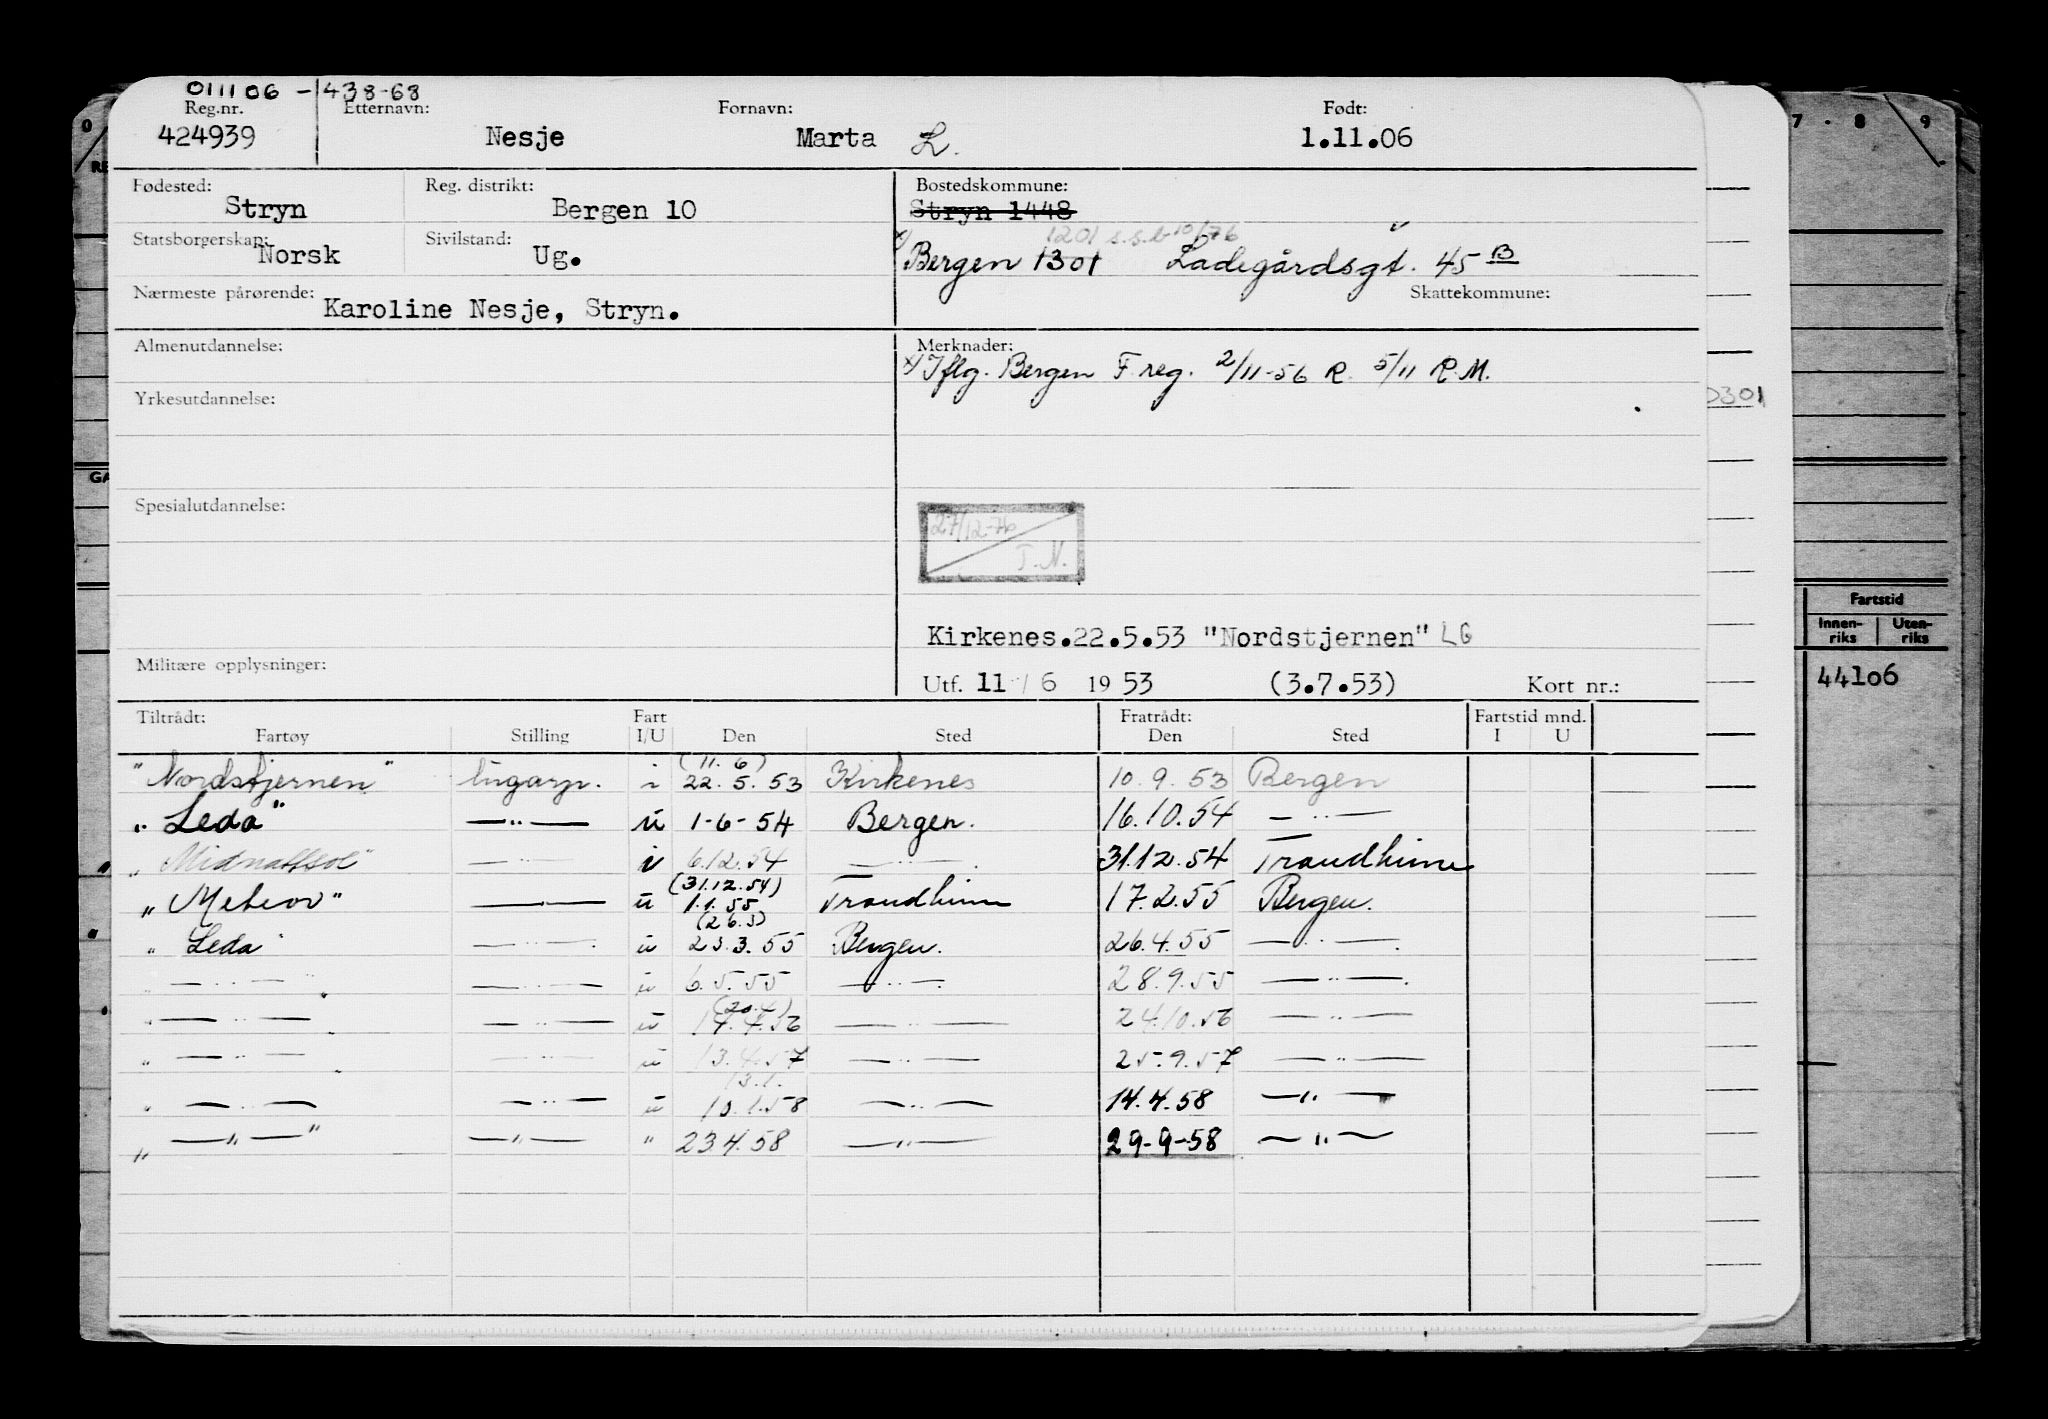 011106 - 438-68
Reg.nr. Etternavn: Fornavn: Født:
424939 Nesje Marta L. 1.11.06
Fødested: Reg. distrikt: Bostedskommune:
Stryn Bergen 10 Stryn 1448
Statsborgerskap: Sivilstand: 1201 s.s.b 10/76
Norsk Ug. x) Bergen 1301 Ladegårdsgt. 45 B
Nærmeste pårørende: Skattekommune:
Karoline Nesje, Stryn.
Almenutdannelse: Merknader:
x) Iflg. Bergen F.reg. 2/11-56 R. 5/11 R.M.
Yrkesutdannelse:
0301
Spesialutdannelse:
27/12-76
T.N.
Kirkenes.22.5.53 "Nordstjernen" LG
Militære opplysninger:
Utf. 11 / 6 1953 (3.7.53) Kort nr.:
Tiltrådt: Fart Fratrådt: Fartstid mnd.
Fartøy Stilling I/U Den Sted Den Sted I U
(11.6)
"Nordstjernen" lugarp. i 22.5.53 Kirkenes 10.9.53 Bergen
"Leda" —"— u 1-6-54 Bergen. 16.10.54 —"—
"Midnattsol" —"— i 6.12.54 —"— 31.12.54 Trondheim
(31.12.54)
"Meteor" —"— u 1.1.55 Trondheim 17.2.55 Bergen.
(26.3)
"Leda" —"— u 23.3.55 Bergen. 26.4.55 —"—
" —"— " —"— u 6.5.55 —"— 28.9.55 —"—
(20.4)
" —"— " —"— u 17.4.56 —"— 24.10.56 —"—
" —"— " —"— u 13.4.57 —"— 25.9.57 —"—
13.1.
" —"— —"— u 10.1.58 —"— 14.4.58 —"—
" —"— " —"— " 23.4.58 —"— 29-9-58 —"—
7 - 8 9
Fartstid
Innen-riks Uten-riks
44106